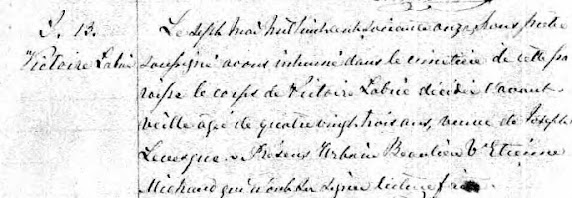 S. 13.
Victoire Labrie
Le sept Mai mil huit cent soixante onze, nous prêtre
soussigné avons inhumé dans le cimetière de cette pa
roisse le corps de Victoire Labrie décédée l'avant
veille agée de quatre vingt trois ans, veuve de Joseph
Levesque. Présens Urbain Beaulieu & Etienne
Michaud qui n'ont su signer lecture faite.